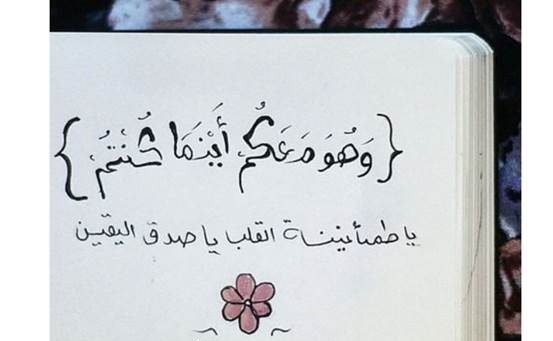 { وَهُوَ مَعَكُمْ أَيْنَمَا كُنْتُمْ }
يا طمأنينة القلب يا صدق اليقين